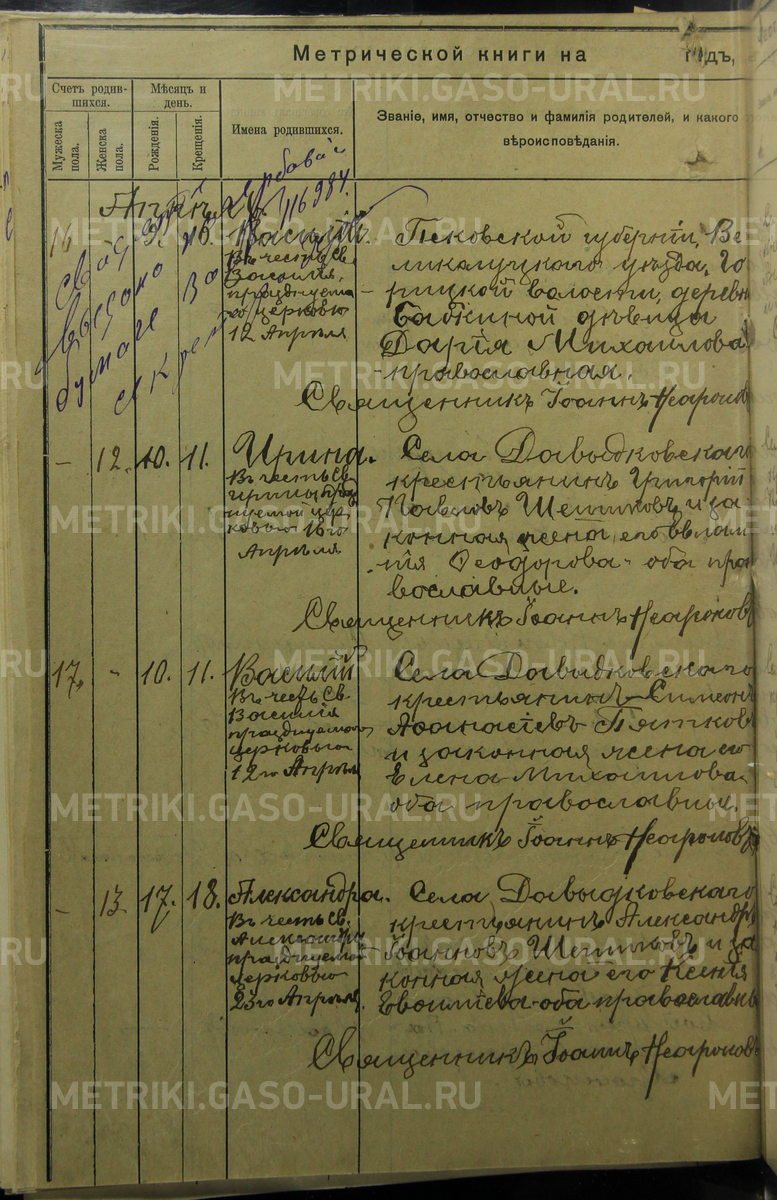 Метрической книги на годъ,
Счетъ родив-
шихся.
Мѣсяцъ и
день.
Мужеска
пола.
Женска
пола.
Рожденія.
Крещенія.
Имена родившихся.
Званіе, имя, отчество и фамилія родителей, и какого
вѣроисповѣданія.
16
9. 10. Василій.
Въ честь Св.
Василія,
празднуема
го церковью
12 Апрѣля
Псковской губерніи, Ве
ликолуцкаго уѣзда, Го
рицкой волости, деревн
Бабкиной дѣвица
Дарія Михаилова
православная.
Священникъ Іоаннъ Неароновъ
Выдано
бумаге
116984.
– 12. 10. 11. Ирина.
Въ честь Св.
Ирины праз
нуемой цер
ковью 16го
Апрѣля
Села Давыдковскаго
крестьянинъ Григорій
Павловъ Шетиковъ и за
конная жена его Евлам
пія Ѳеодорова – оба пра
вославные.
Священникъ Іоаннъ Неароновъ
17. - 10. 11. Василій
Въ честь Св.
Василія
празднуемаго
церковью
12го Апрѣля
Села Давыдковскаго
крестьянинъ Симеонъ
Аѳанасіевъ Пятков
и законная жена его
Елена Михаилова
оба православные.
Священникъ Іоаннъ Неароновъ
– 13. 17. 18. Александра.
Въ честь Св.
Александры
празднуемой
церковью
23го Апрѣля.
Села Давыдковскаго
крестьянинъ Александръ
Іоанновъ Шетиковъ и за
конная жена его Ксенія
Евѳиміева – оба православны
Священникъ Іоаннъ Неароновъ
METRIKI.GASO-URAL.RU